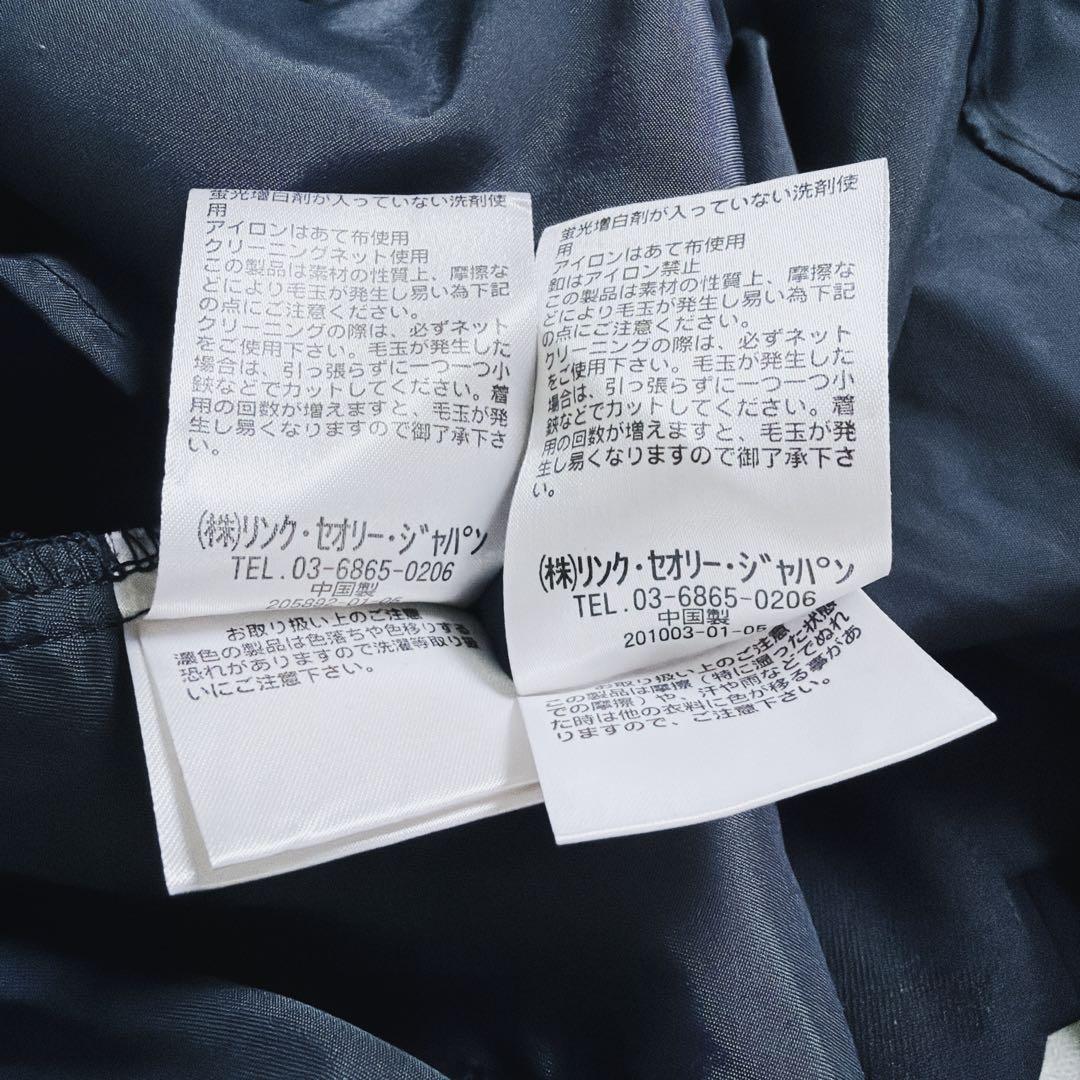 蛍光増白剤が入っていない洗剤使
用
アイロンはあて布使用
クリーニングネット使用
この製品は素材の性質上、摩擦な
どにより毛玉が発生し易い為下記
の点にご注意ください。
クリーニングの際は、必ずネット
をご使用下さい。毛玉が発生した
場合は、引っ張らずに一つ一つ小
鋏などでカットしてください。着
用の回数が増えますと、毛玉が発
生し易くなりますので御了承下さ
い。
(株)リンク・セオリー・ジャパン
TEL.03-6865-0206
中国製
205892-01-05
お取り扱い上のご注意
濃色の製品は色落ちや色移りする
恐れがありますので洗濯等取り扱
いにご注意下さい。
蛍光増白剤が入っていない洗剤使
用
アイロンはあて布使用
釦はアイロン禁止
この製品は素材の性質上、摩擦な
どにより毛玉が発生し易い為下記
の点にご注意ください。
クリーニングの際は、必ずネット
をご使用下さい。毛玉が発生した
場合は、引っ張らずに一つ一つ小
鋏などでカットしてください。着
用の回数が増えますと、毛玉が発
生し易くなりますので御了承下さ
い。
(株)リンク・セオリー・ジャパン
TEL.03-6865-0206
中国製
201003-01-05
お取り扱い上のご注意
この製品は摩擦（特に湿った状態
での摩擦）や、汗や雨などでぬれ
た時は他の衣料に色が移る事があ
りますので、ご注意下さい。